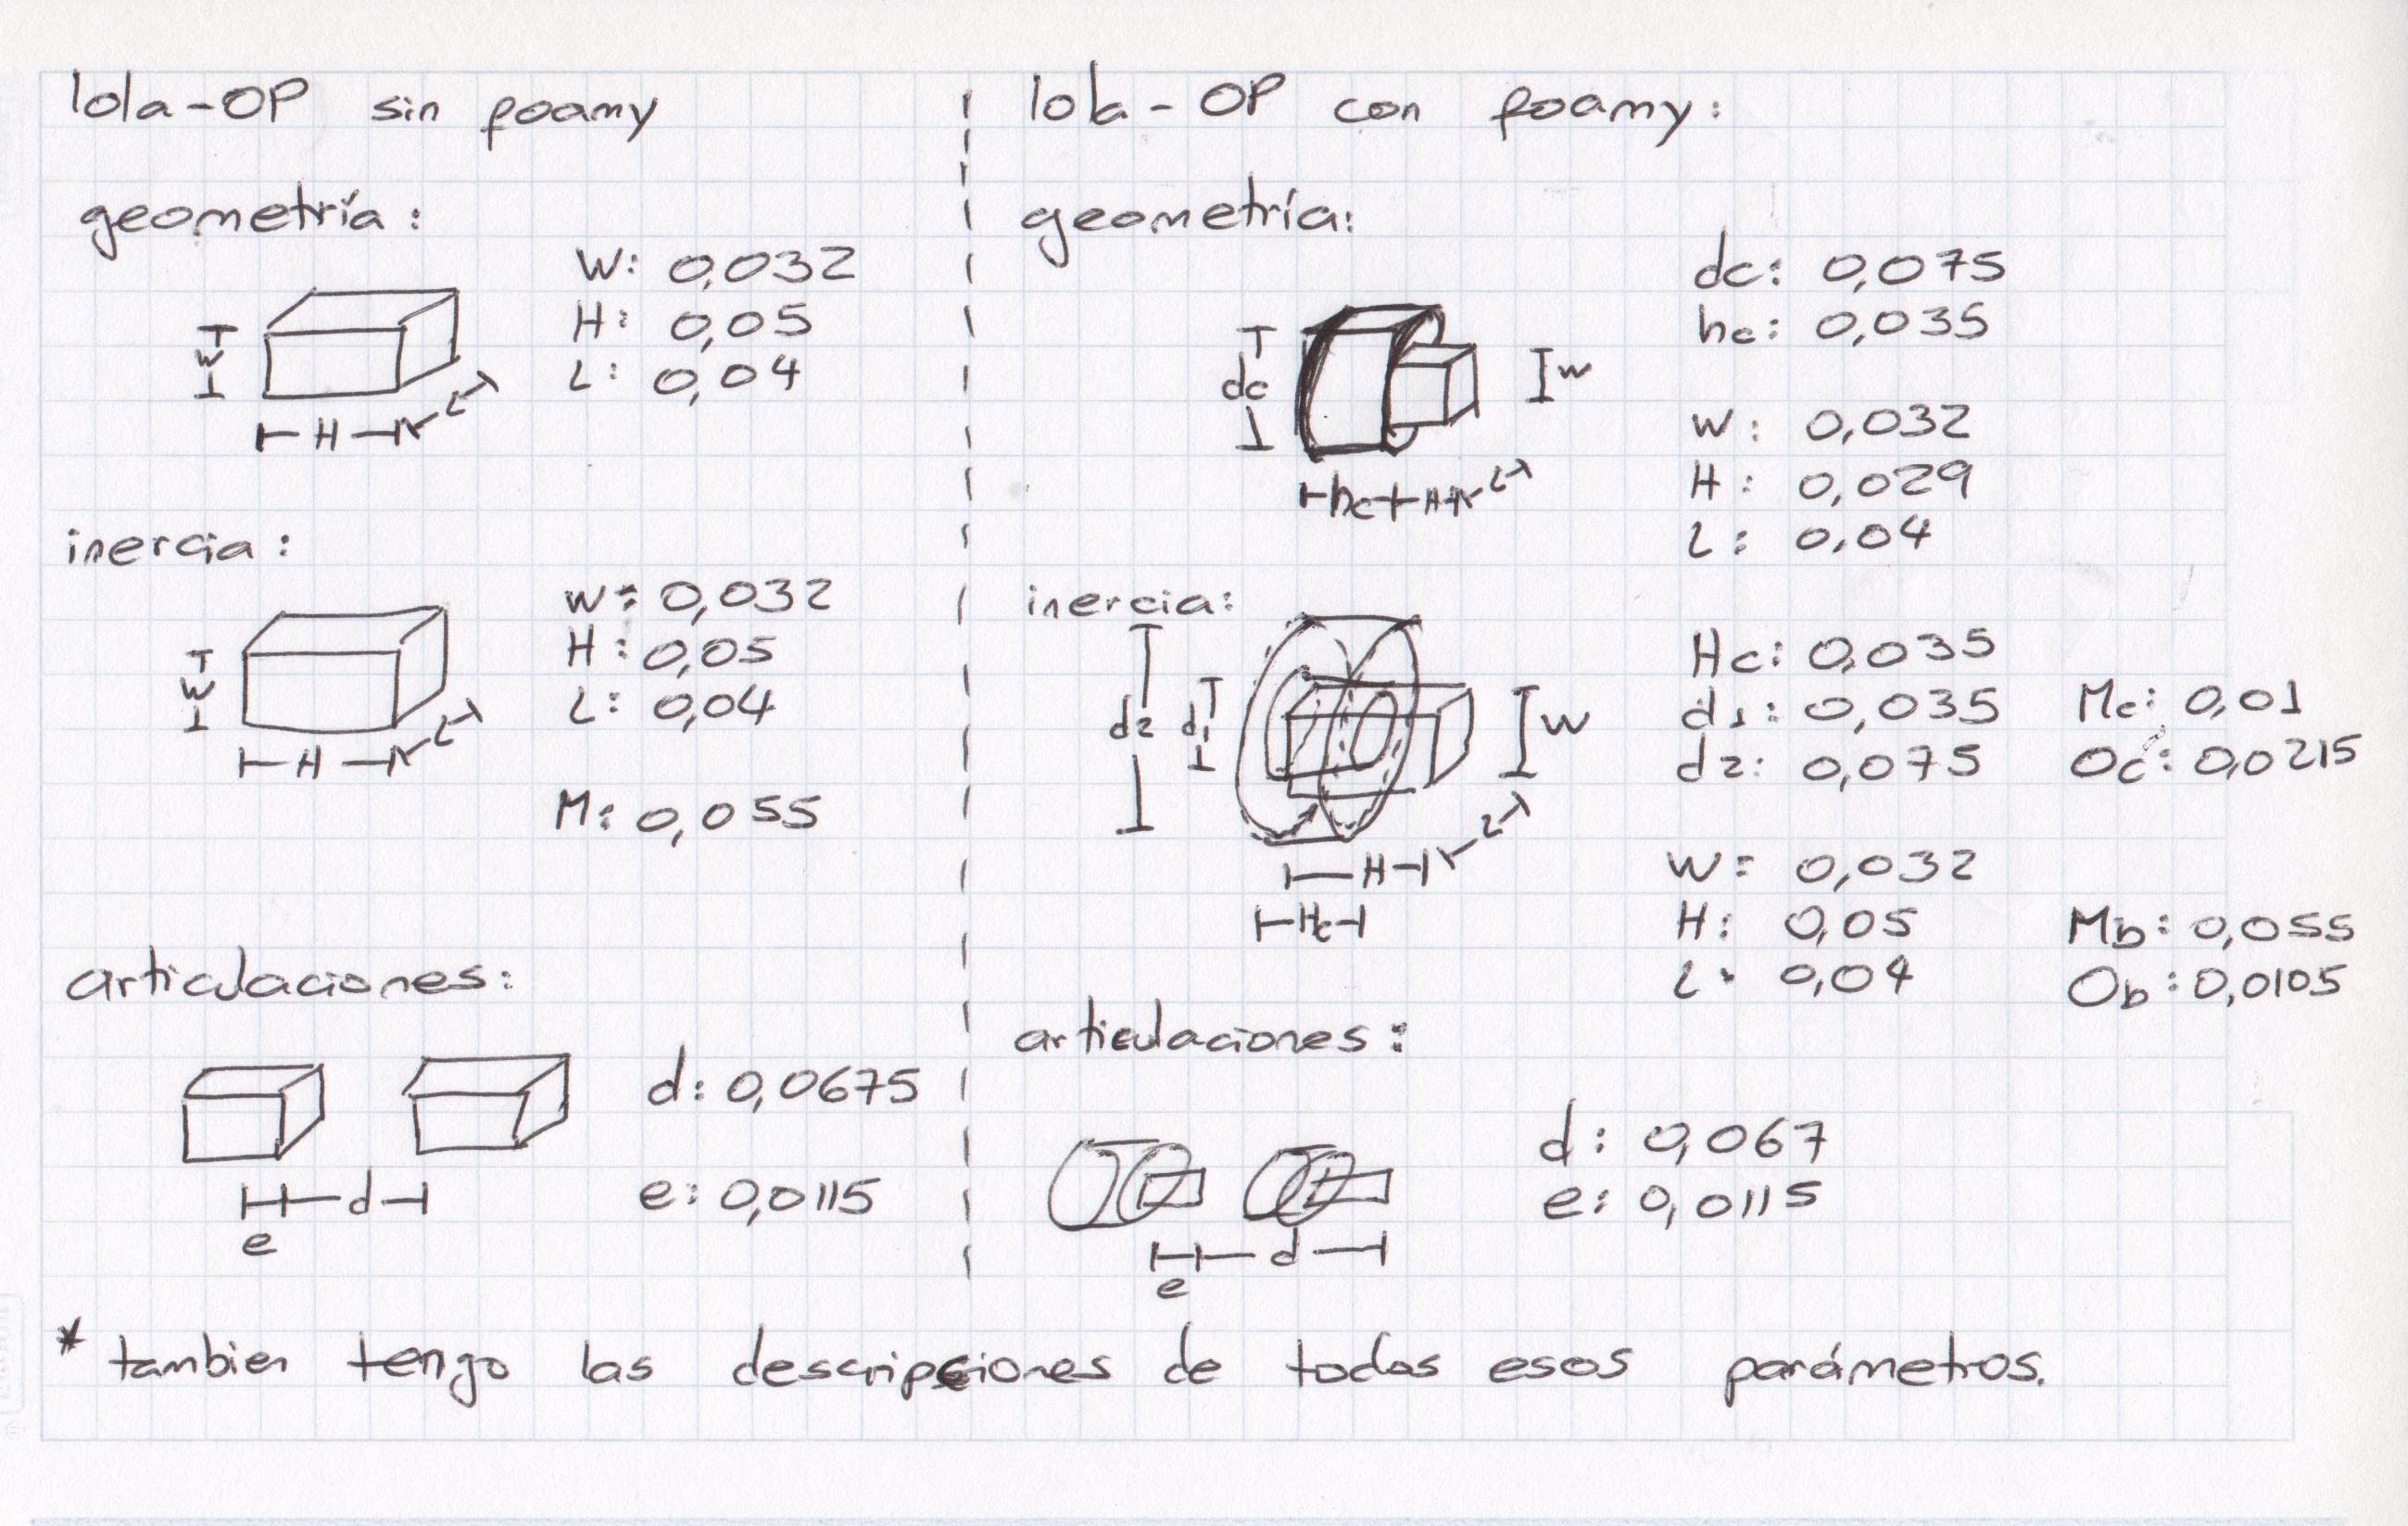 lola-OP sin foamy
geometría:
W: 0,032
H: 0,05
L: 0,04
W
H
L
inercia:
W: 0,032
H: 0,05
L: 0,04
W
H
L
M: 0,055
articulaciones:
d: 0,0675
e: 0,0115
d
e
lola-OP con foamy:
geometría:
dc: 0,075
hc: 0,035
dc
W
W: 0,032
H: 0,029
L: 0,04
hc
H
L
inercia:
Hc: 0,035
d1: 0,035
d2: 0,075
Mc: 0,01
Oc: 0,0215
d2
d1
W
L
H
Hc
W: 0,032
H: 0,05
L: 0,04
Mb: 0,055
Ob: 0,0105
articulaciones:
d: 0,067
e: 0,0115
d
e
* tambien tengo las descripciones de todos esos parámetros.